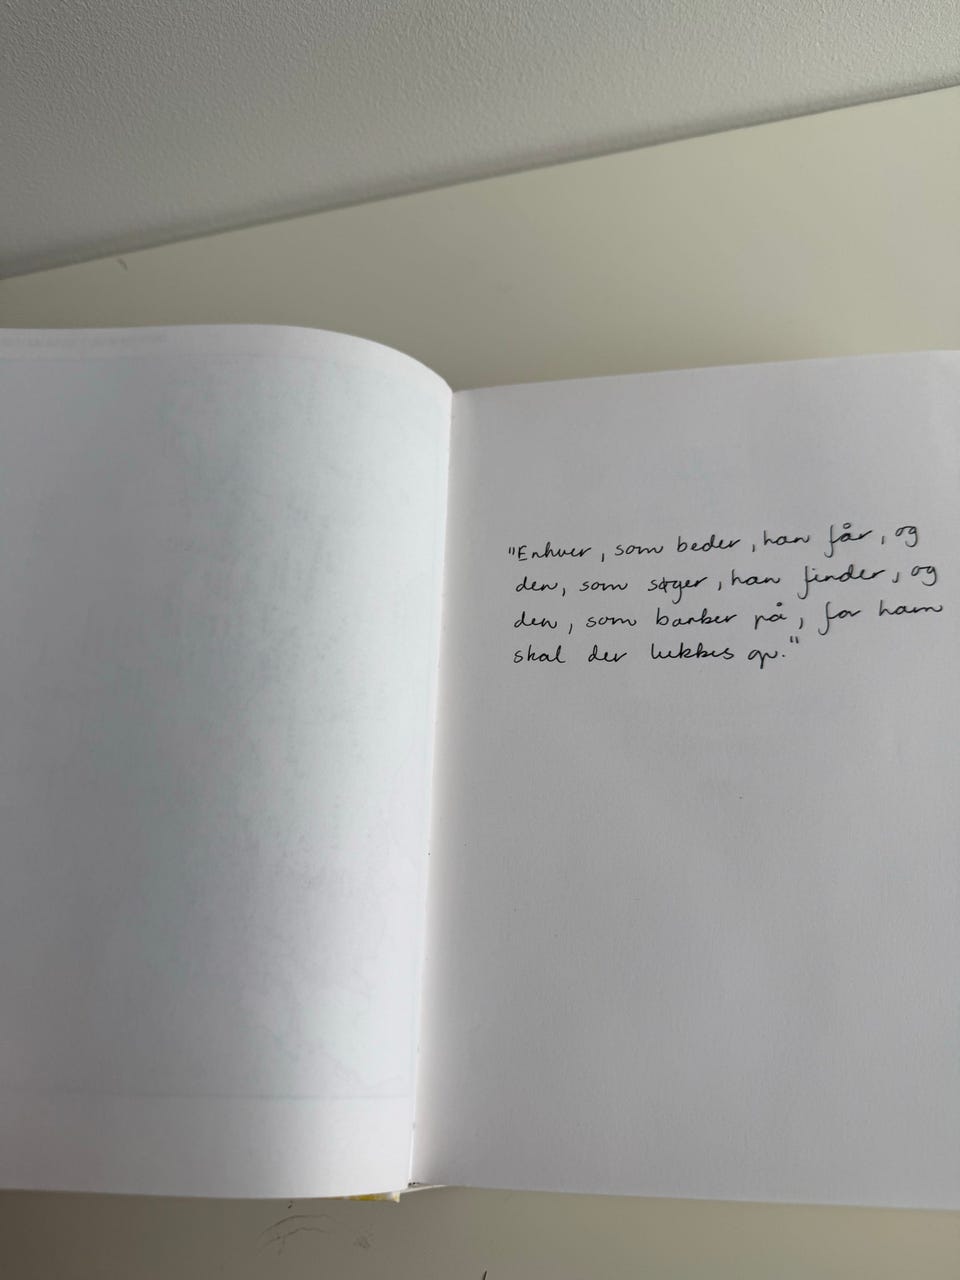 "Enhver, som beder, han får, og
den, som søger, han finder, og
den, som banker på, for ham
skal der lukkes op."